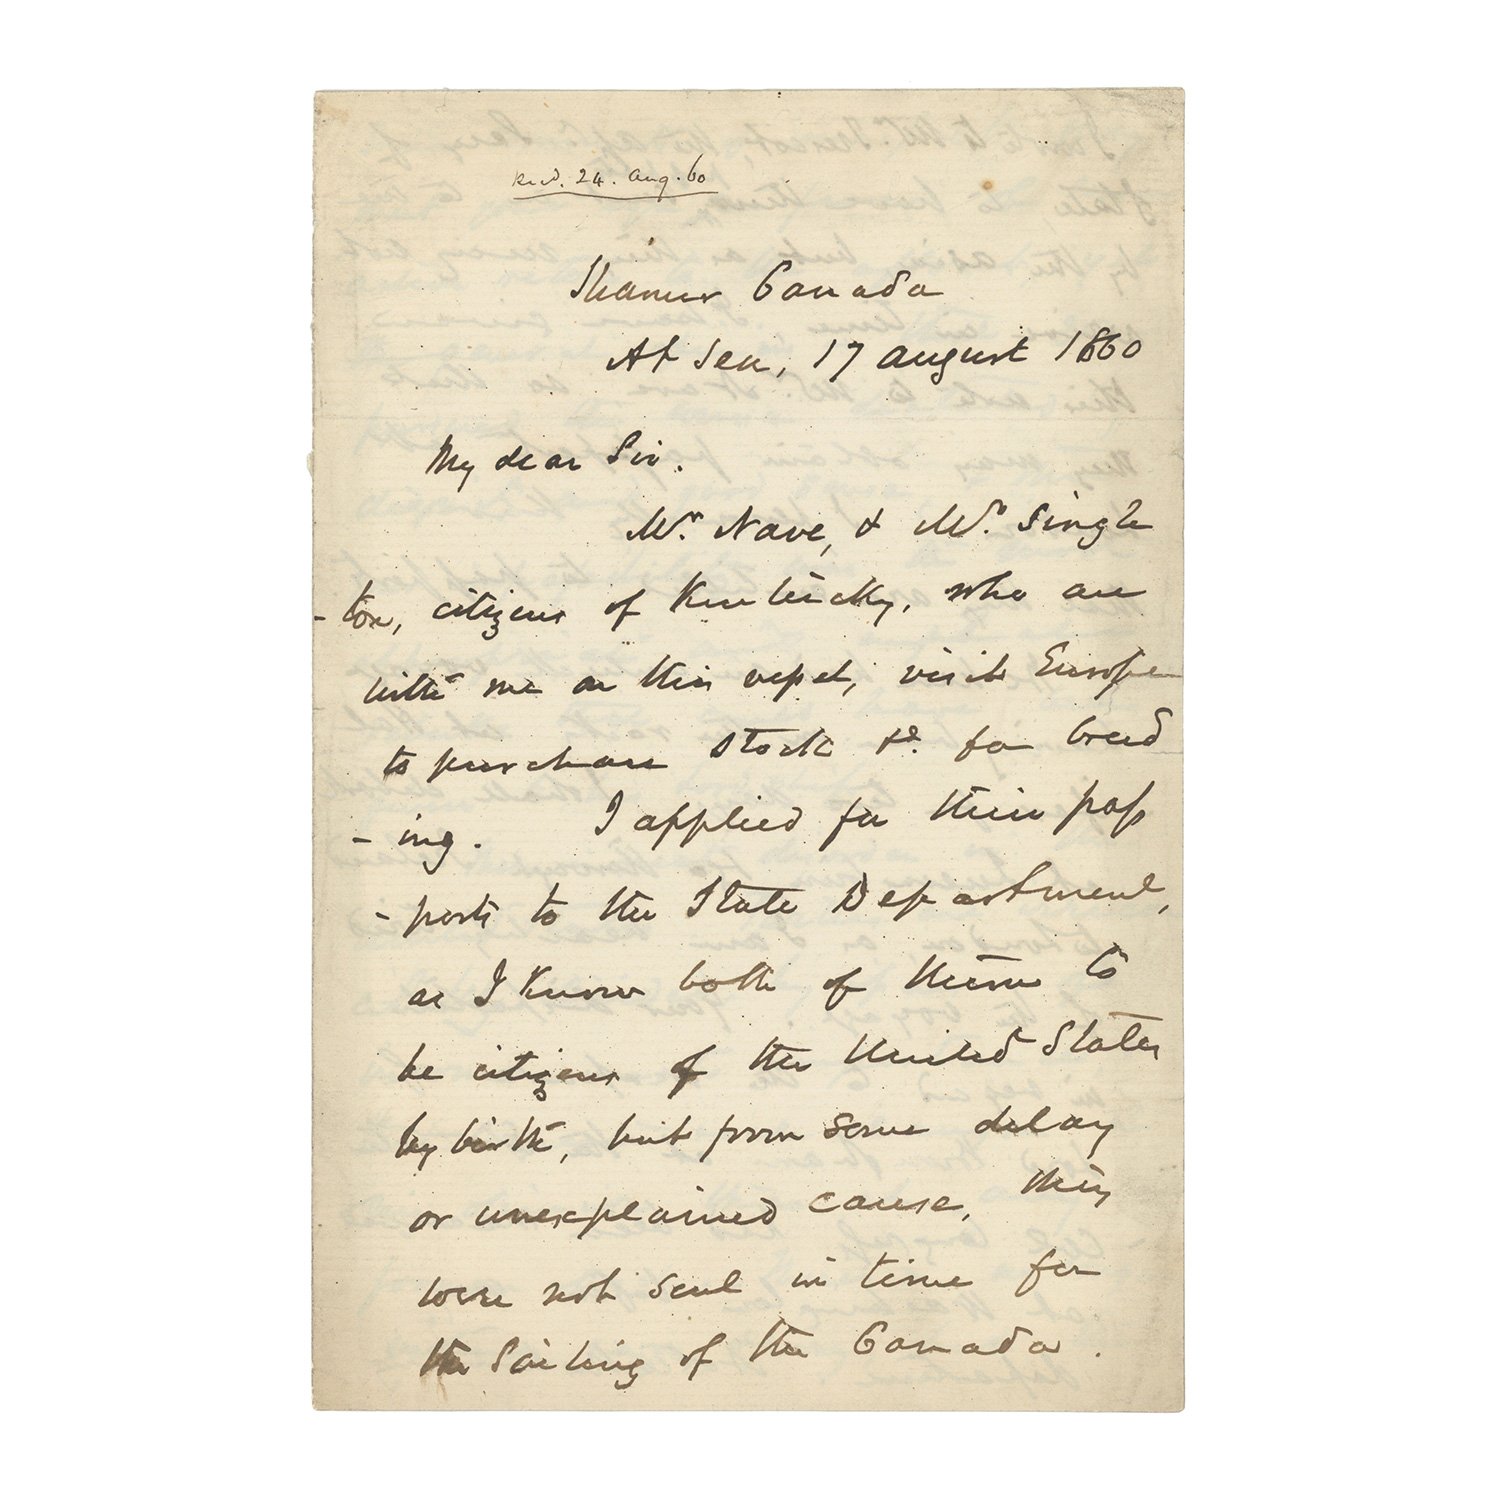 Recd. 24. Aug. 60
Steamer Canada
At Sea, 17 August 1860
My dear Sir.
Mr. Nave, & Mr. Single
-ton, citizens of Kentucky, who are
with me on this vessel, visit Europe
to purchase stock &c. for breed
-ing. I applied for their pass
-ports to the State Department,
as I know both of them to
be citizens of the United States
by birth, but from some delay
or unexplained cause, they
were not sent in time for
the sailing of the Canada.